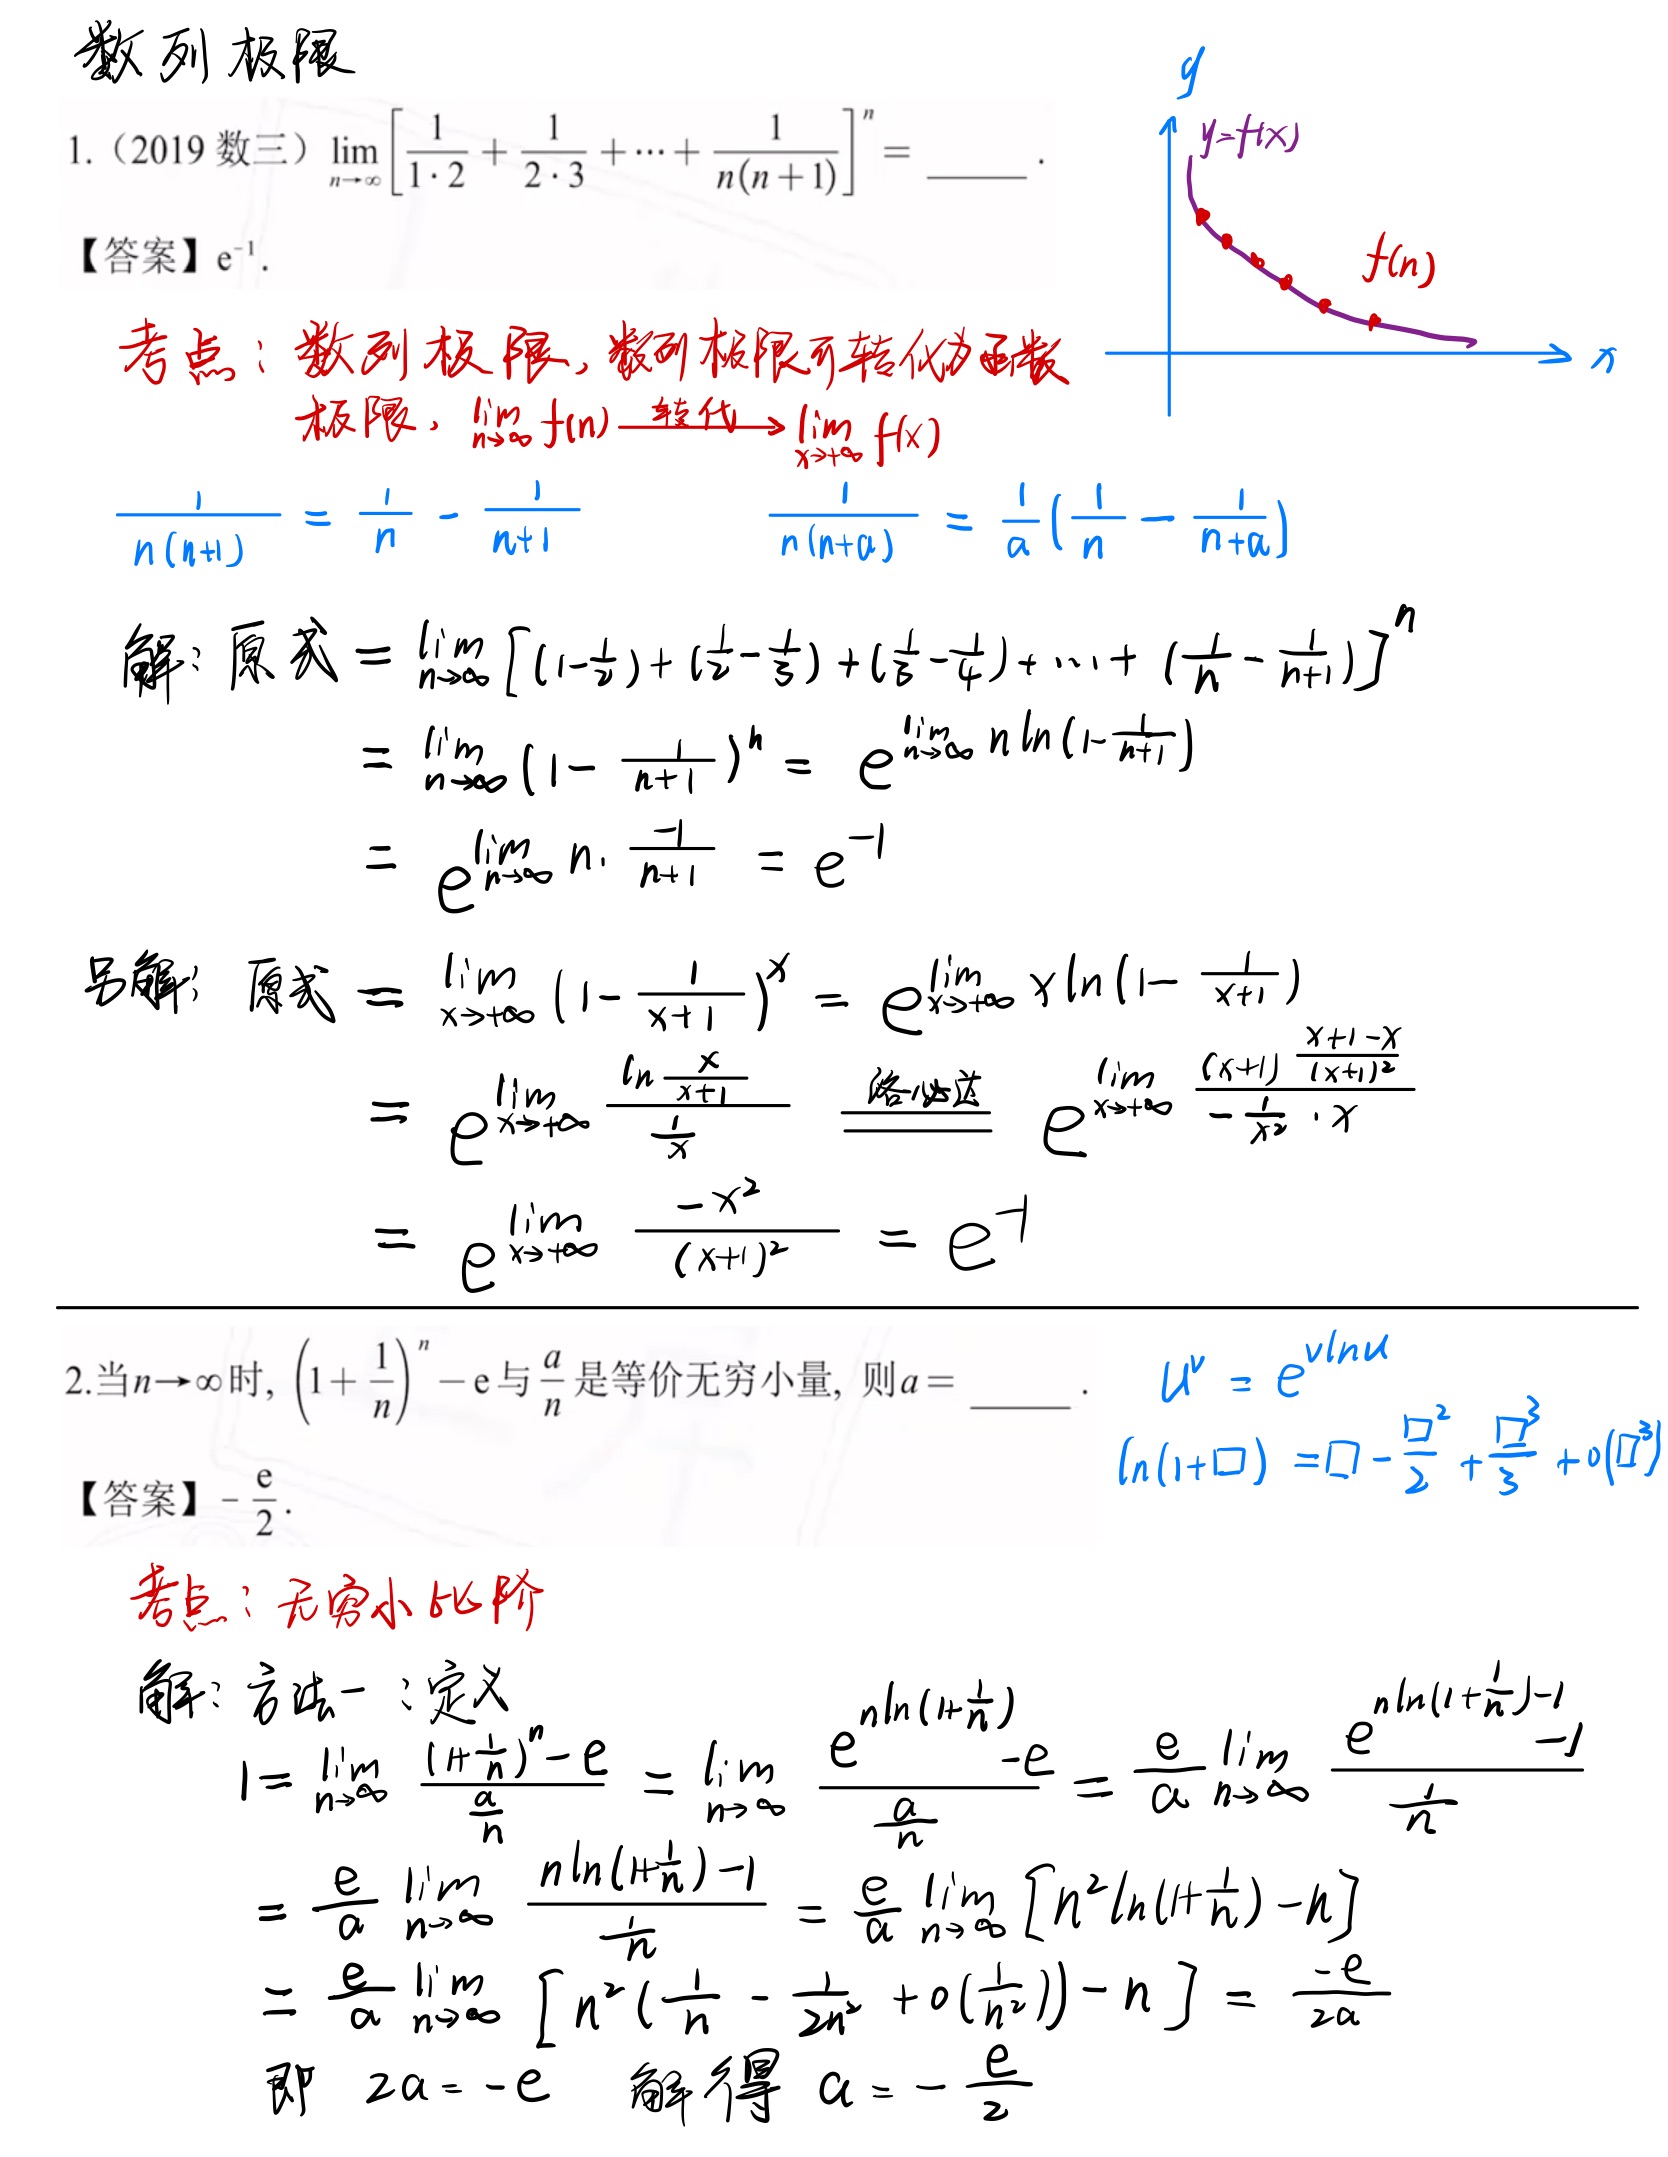 数列极限
1.（2019 数三）lim_{n→∞} [1/(1·2) + 1/(2·3) + ··· + 1/(n(n+1))]^n = ____ .
【答案】e^{-1}.
y
y=f(x)
f(n)
x
考点：数列极限，数列极限可转化为函数
极限，lim_{n→∞} f(n) —转化→ lim_{x→+∞} f(x)
1/(n(n+1)) = 1/n - 1/(n+1)    1/(n(n+a)) = 1/a (1/n - 1/(n+a))
解：原式 = lim_{n→∞} [(1-1/2)+(1/2-1/3)+(1/3-1/4)+···+(1/n-1/(n+1))]^n
= lim_{n→∞} (1-1/(n+1))^n = e^{lim_{n→∞} n ln(1-1/(n+1))}
= e^{lim_{n→∞} n·(-1)/(n+1)} = e^{-1}
另解：原式 = lim_{x→+∞} (1-1/(x+1))^x = e^{lim_{x→+∞} x ln(1-1/(x+1))}
= e^{lim_{x→+∞} (ln x/(x+1))/(1/x)} =洛必达= e^{lim_{x→+∞} ((x+1) (x+1-x)/(x+1)^2)/(-1/x^2 · x)}
= e^{lim_{x→+∞} -x^2/(x+1)^2} = e^{-1}
2.当n→∞时, (1+1/n)^n - e与a/n是等价无穷小量, 则a= ____ .
【答案】- e/2 .
u^v = e^{vlnu}
ln(1+□) = □ - □^2/2 + □^3/3 + o(□^3)
考点：无穷小比阶
解：方法一：定义
1 = lim_{n→∞} ((1+1/n)^n - e)/(a/n) = lim_{n→∞} (e^{nln(1+1/n)} - e)/(a/n) = e/a lim_{n→∞} (e^{nln(1+1/n)-1} - 1)/(1/n)
= e/a lim_{n→∞} (nln(1+1/n)-1)/(1/n) = e/a lim_{n→∞} [n^2 ln(1+1/n) - n]
= e/a lim_{n→∞} [n^2(1/n - 1/2n^2 + o(1/n^2)) - n] = -e/2a
即 2a = -e 解得 a = - e/2